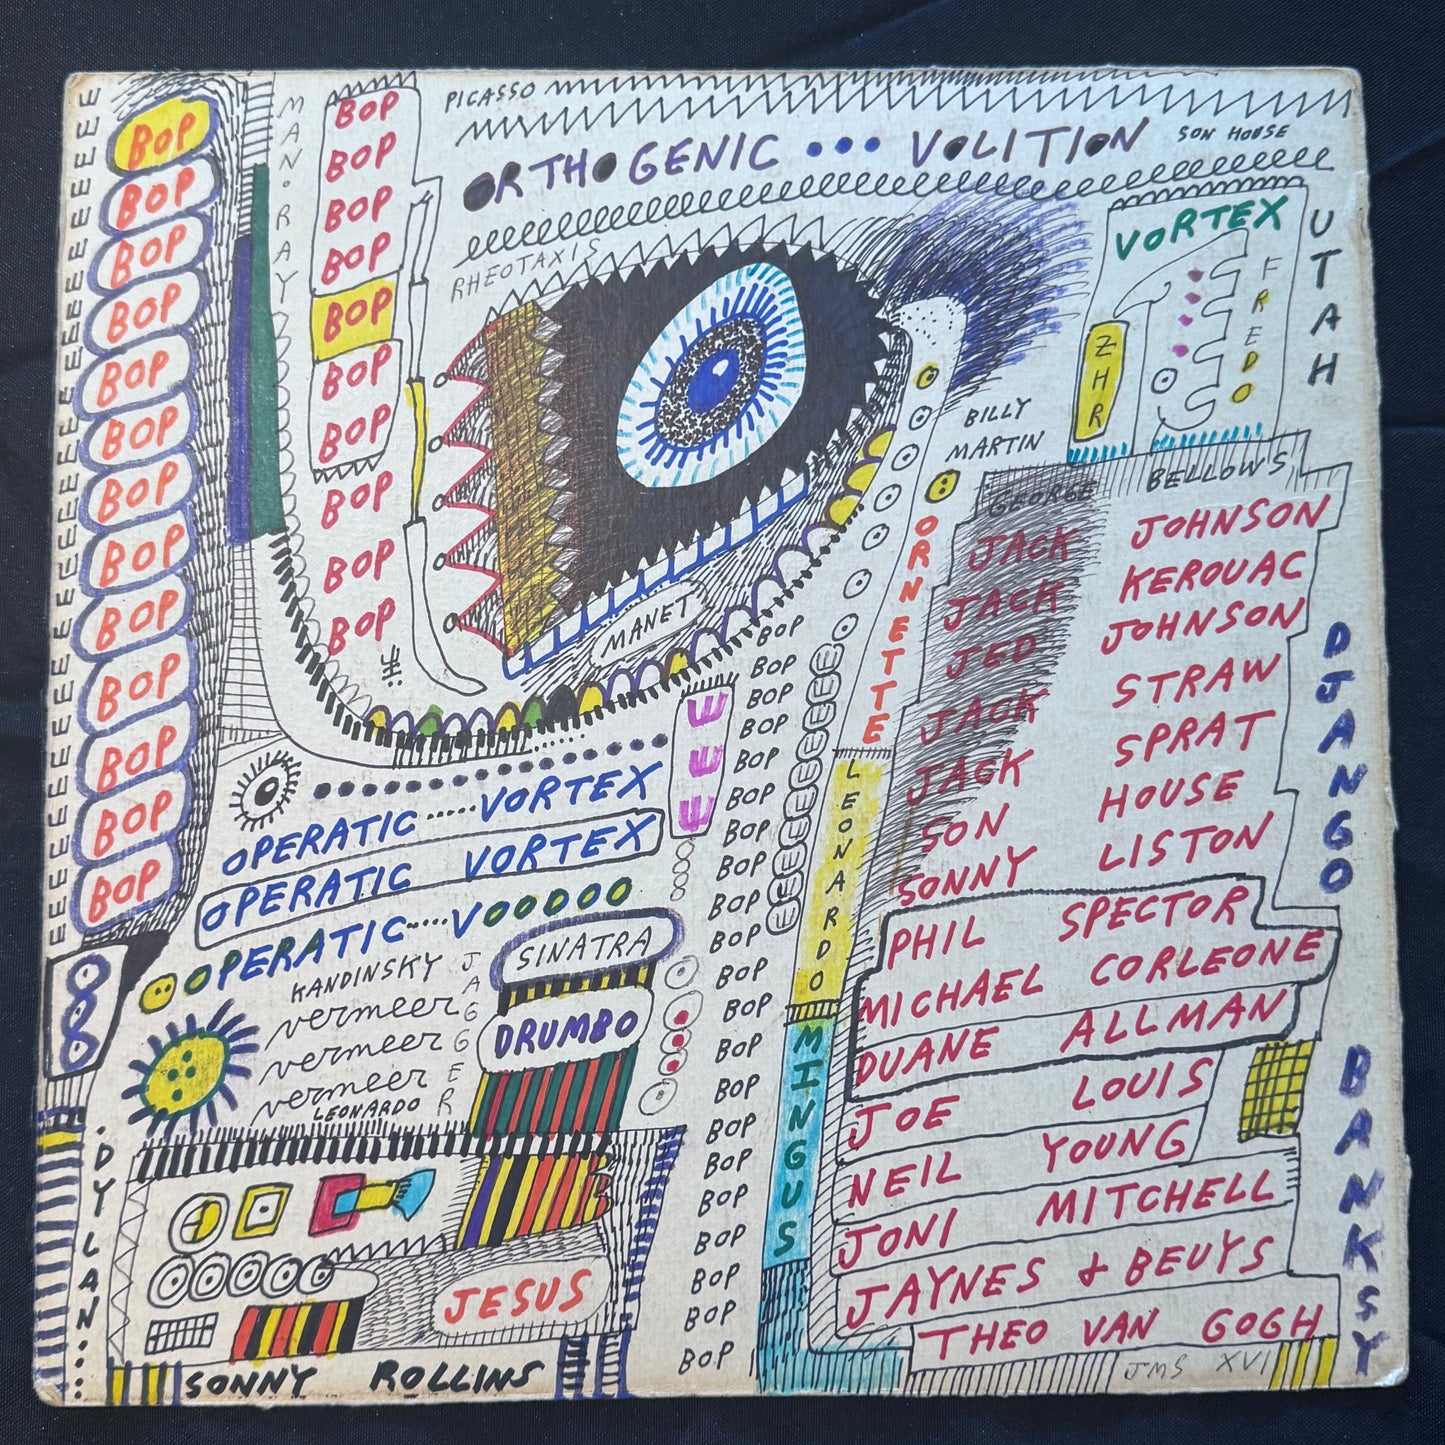 PICASSO
ORTHOGENIC ... VOLITION
SON HOUSE
RHEOTAXIS
MAN.RAY
BOP
BOP
BOP
BOP
BOP
BOP
BOP
BOP
BOP
BOP
BOP
BOP
BOP
BOP
BOP
BOP
BOP
BOP
BOP
BOP
BOP
BOP
BOP
VORTEX
FREDO
ZHR
UTAH
BILLY
MARTIN
GEORGE BELLOWS
JACK JOHNSON
JACK KEROUAC
JED JOHNSON
JACK STRAW
JACK SPRAT
SON HOUSE
SONNY LISTON
PHIL SPECTOR
MICHAEL CORLEONE
DUANE ALLMAN
JOE LOUIS
NEIL YOUNG
JONI MITCHELL
JAYNES & BEUYS
THEO VAN GOGH
JMS XVI
DJANGO
BANKSY
ORNETTE
LEONARDO
MINGUS
MANET
BOP
BOP
BOP
BOP
BOP
BOP
BOP
BOP
BOP
BOP
BOP
BOP
BOP
BOP
BOP
BOP
BOP
BOP
BOP
BOP
BOP
OPERATIC....VORTEX
OPERATIC VORTEX
OPERATIC....VOODOO
SINATRA
DRUMBO
JAGGER
KANDINSKY
vermeer
vermeer
vermeer
LEONARDO
.DYLAN....
JESUS
SONNY ROLLINS